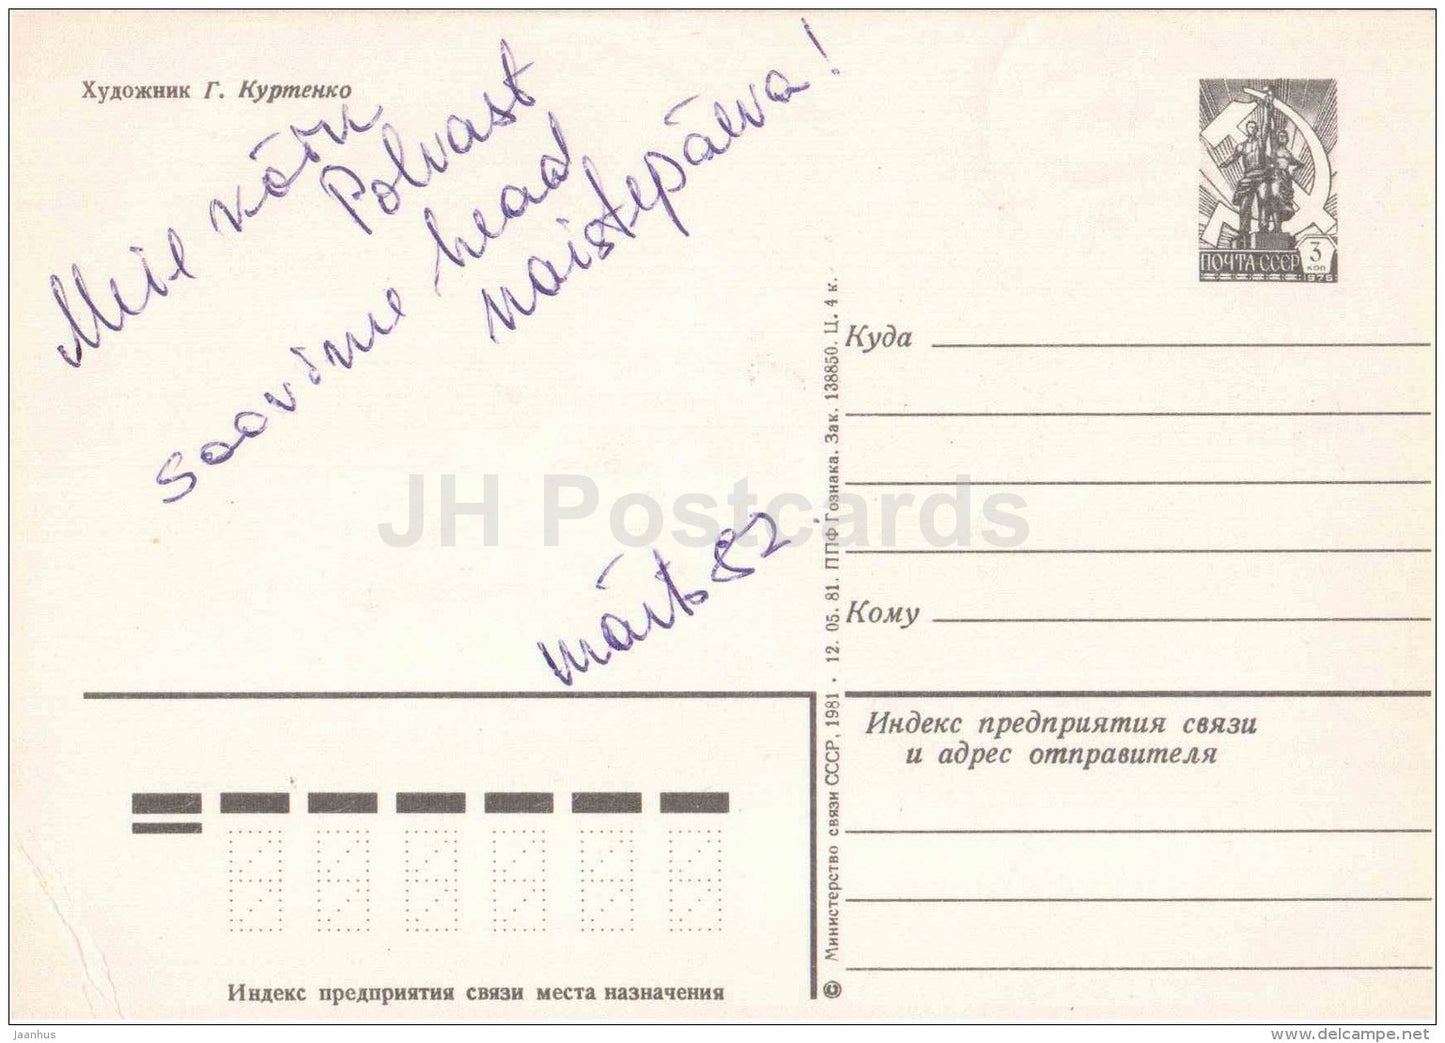 Художник Г. Куртенко
Meie
Polvast
soovime head
naistepäeva!
märts 82.
ПОЧТА СССР
3
коп
1976
Куда
Кому
Индекс предприятия связи
и адрес отправителя
Индекс предприятия связи места назначения
© Министерство связи СССР, 1981 · 12. 05. 81. ППФ Гознака. Зак. 138850. Ц. 4 к.
JH Postcards
jaanhus
delcampe.net